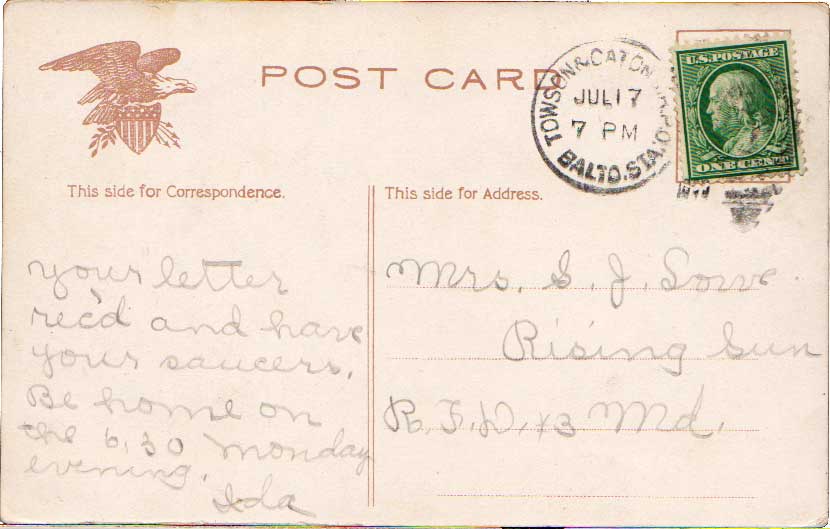 POST CARD
TOWSON & CATON. R.P.O.
JUL 17
7 PM
BALTO. STA.
U.S. POSTAGE
ONE CENT
This side for Correspondence.
This side for Address.
your letter
rec'd and have
your saucers.
Be home on
the 6.30 Monday
evening.
Ida
Mrs. S. J.
Rising Sun
R.F.D. #3 Md.